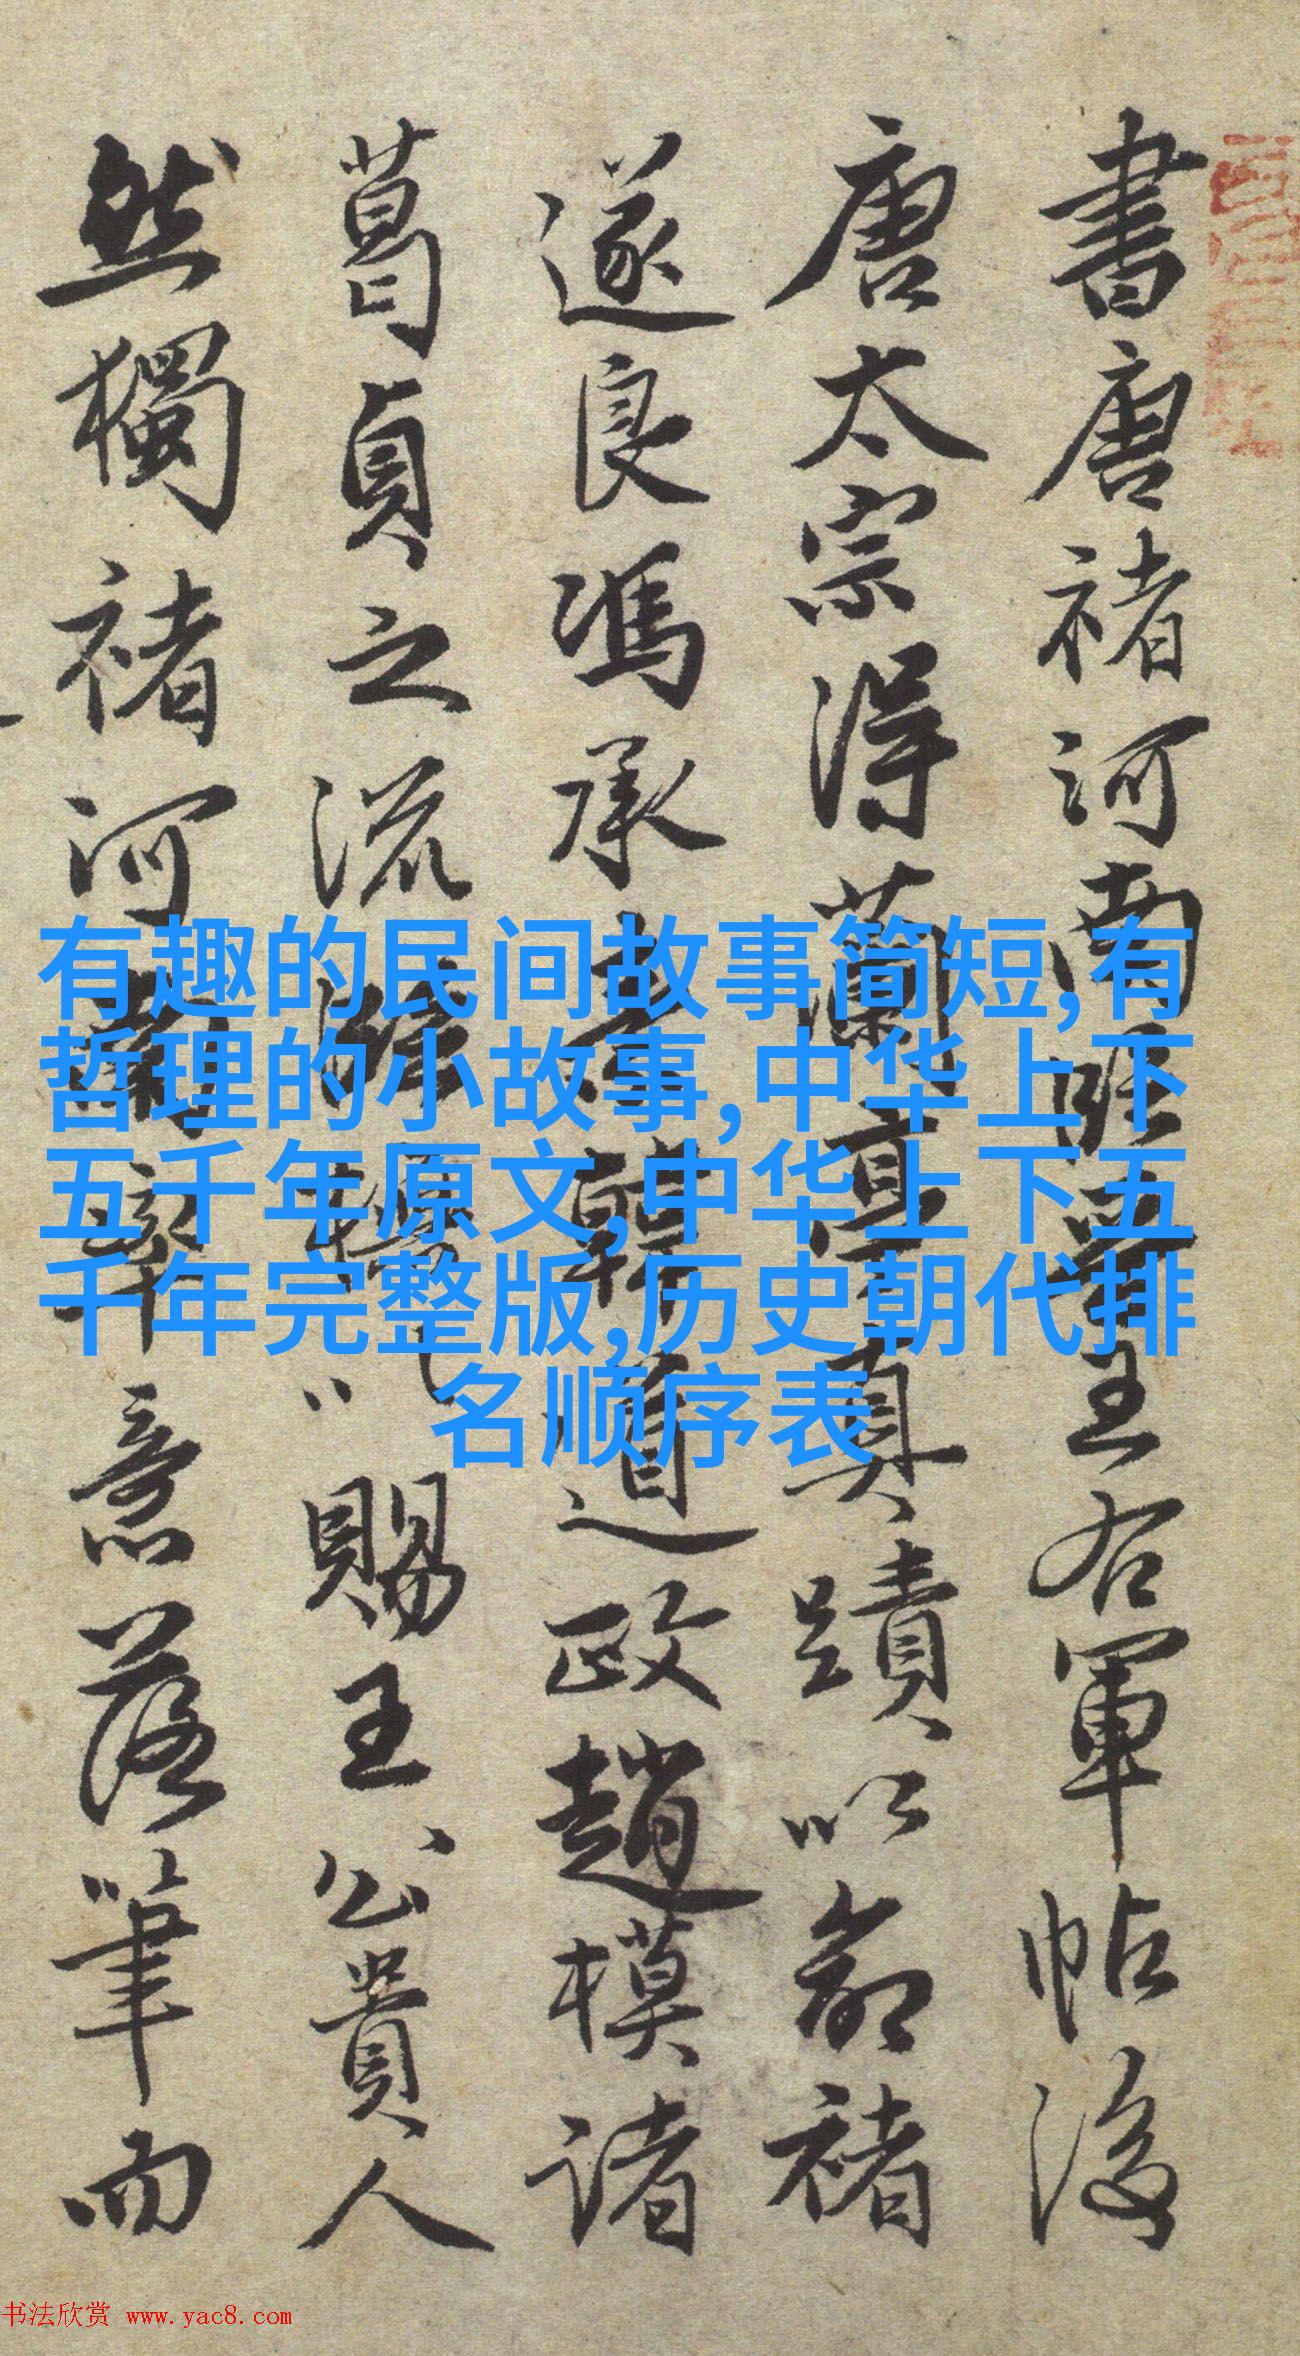 書唐褚河南臨晉王右軍帖後
唐太宗得蘭亭真蹟以命褚
遂良馮承素韓道政趙模諸
葛貞之流臨搨以賜王公貴人
然獨褚河南率意落筆而
有趣的民间故事简短,有
哲理的小故事,中华上下
五千年原文,中华上下五
千年完整版,历史朝代排
名顺序表
书法欣赏 www.yac8.com